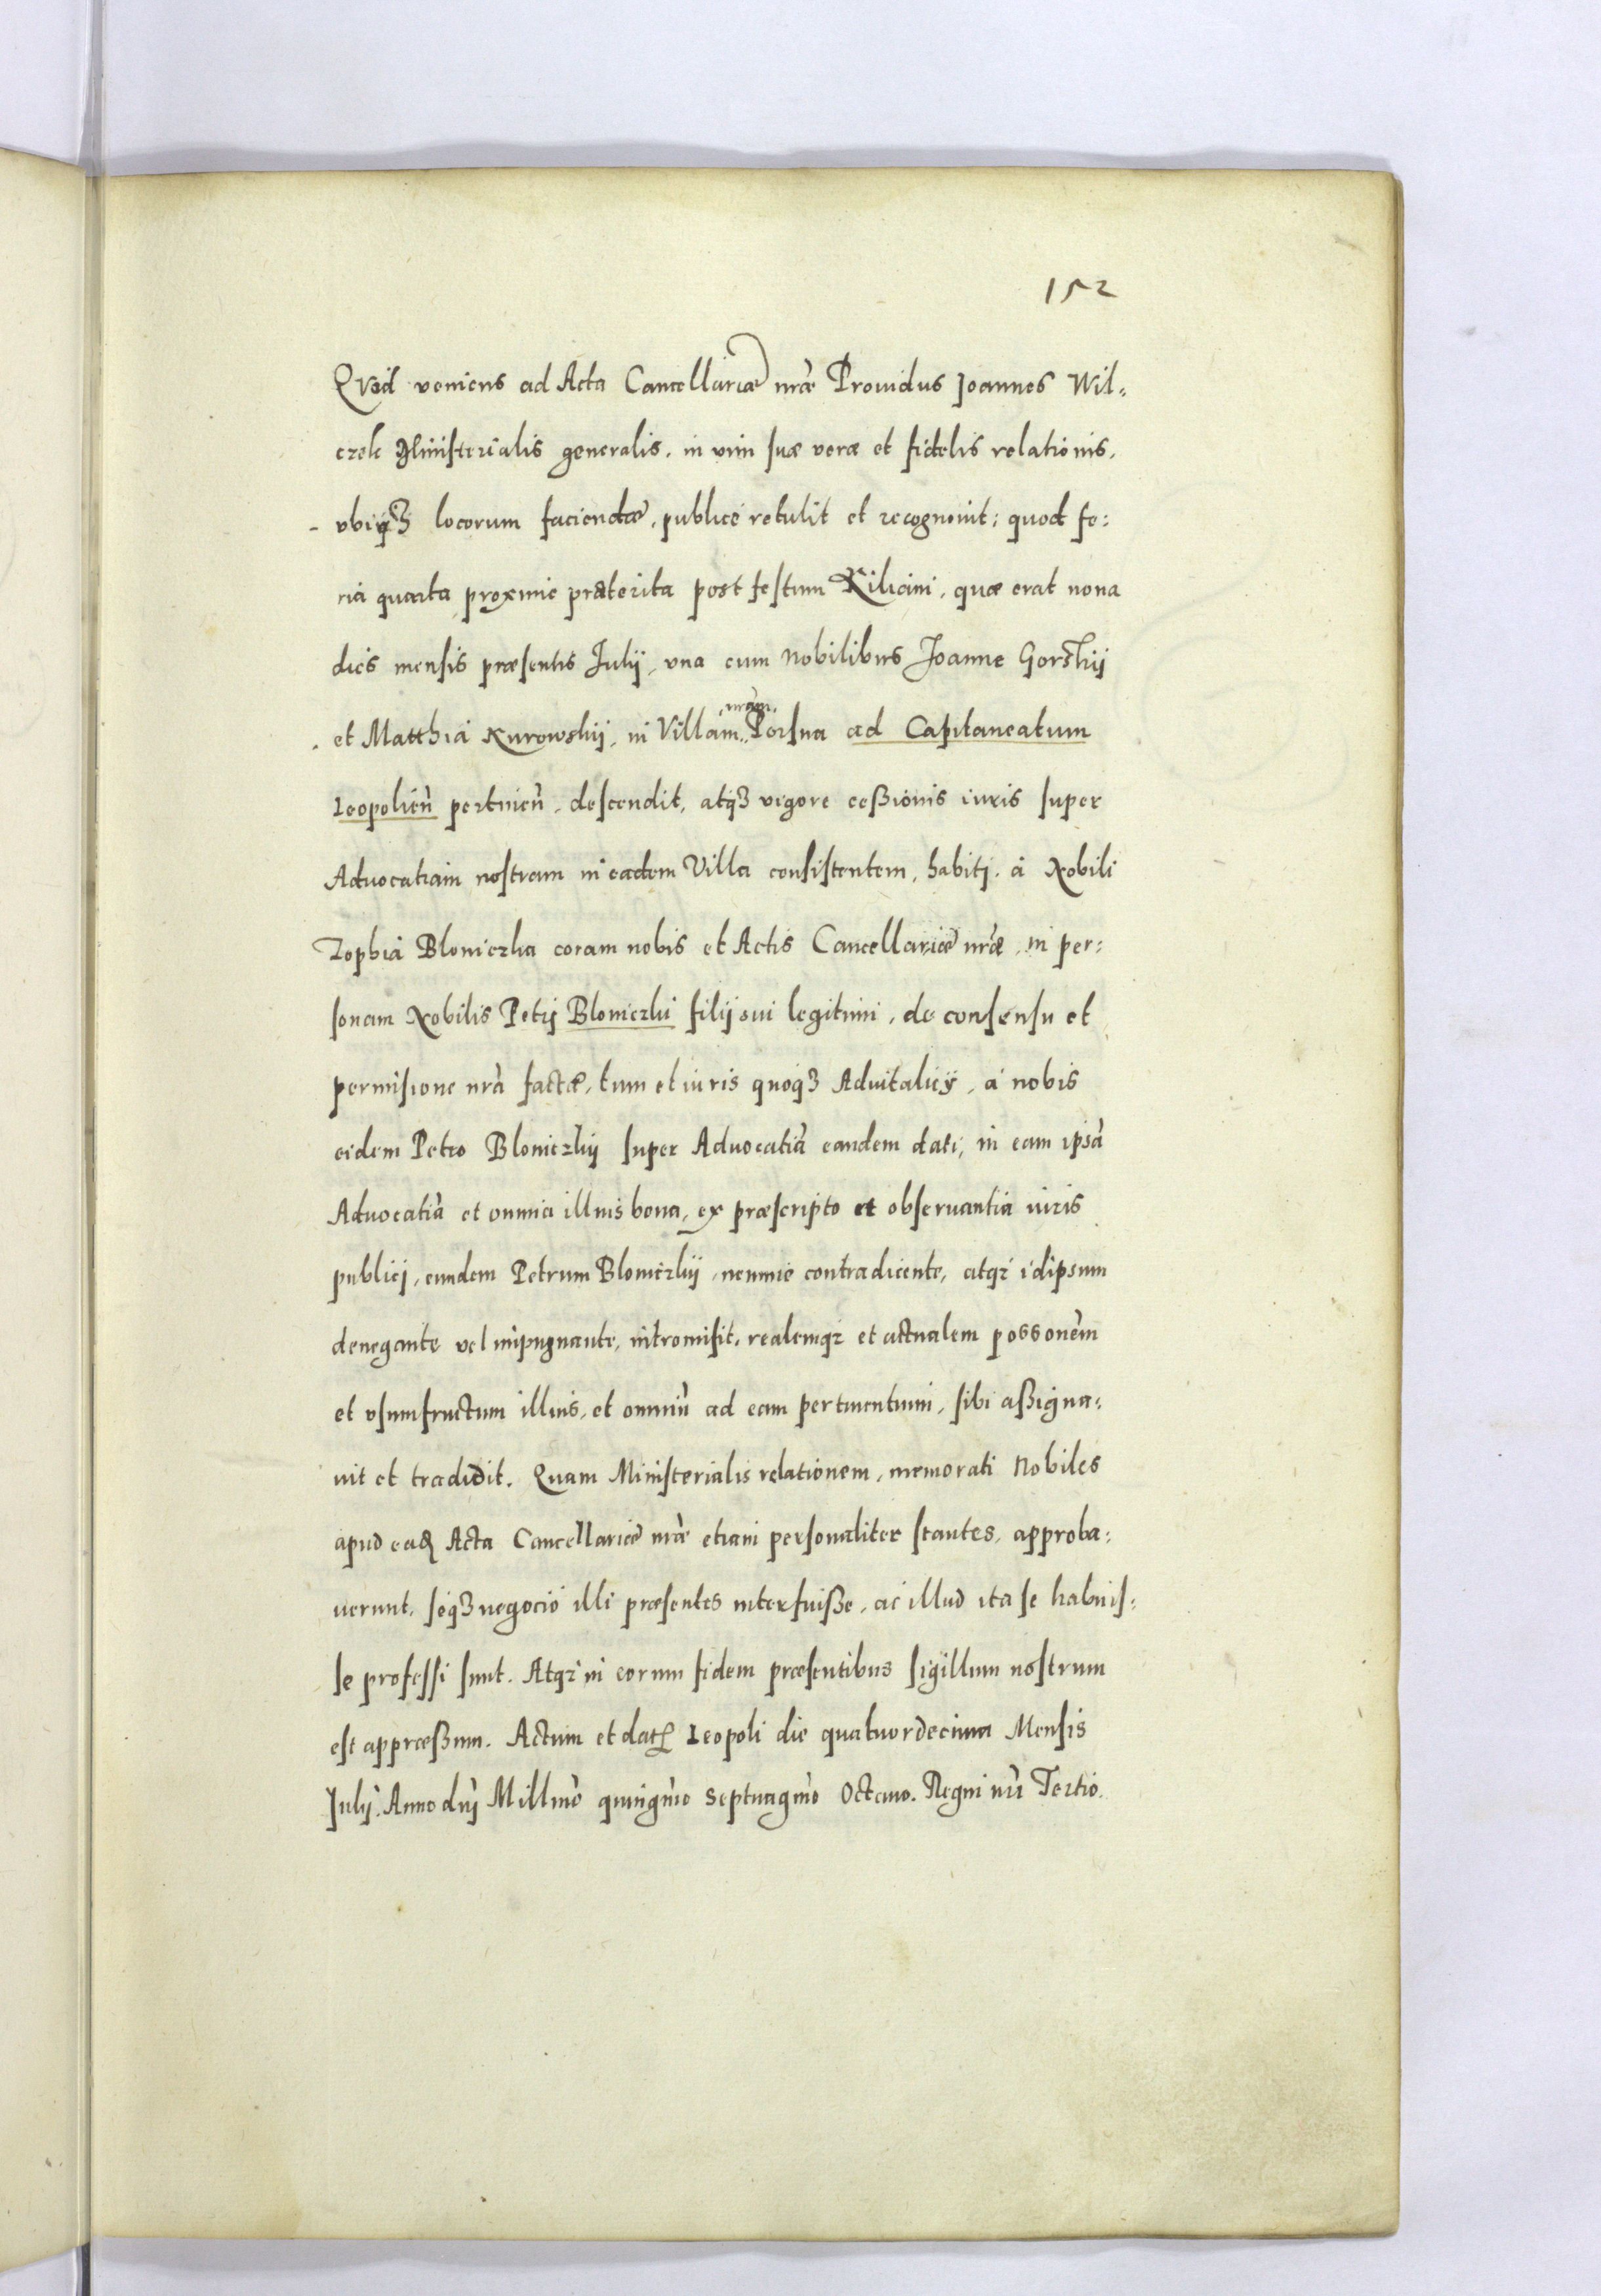 152
Quod veniens ad Acta Cancellariæ nræ Prouidus Joannes Wil-
czek Ministerialis generalis, in vim suæ veræ et fidelis relationis,
vbiq3 locorum faciendæ, publicè retulit et recognouit: quod fe:
ria quarta proxime præterita post festum Kiliani, quæ erat nona
dies mensis præsentis Julij, vna cum Nobilibus Joanne Gorskij
nram
et Matthia Kurowskij, in Villam Porsna ad Capitaneatum
Leopolień pertineń, descendit, atq3 vigore ceßionis iuris super
Aduocatiam nostram in eadem Villa consistentem, habiti, à Nobili
Zophia Bloniczka coram nobis et Actis Cancellariæ nræ, in per:
sonam Nobilis Petri Bloniczki filij sui legitimi, de consensu et
permisione nrà factæ, tum et iuris quoq3 Aduitalicij, à nobis
eidem Petro Bloniczkij super Aduocatiã eandem dati, in eam ipsã
Aduocatiã et omnia illius bona, ex præscripto et obseruantia iuris
publici, eundem Petrum Bloniczkij, nemine contradicente, atq3 idipsum
denegante vel inpugnante, intromisit, realemq3 et actualem possonem
et vsumfructum illius, et omniũ ad eam pertinentium, sibi aßigna:
uit et tradidit. Quam Ministerialis relationem, memorati Nobiles
apud eadem Acta Cancellariæ nræ etiam personaliter stantes, approba:
uerunt, seq3 negocio illi præsentes interfuiße, ac illud ita se habuis:
se professi sunt. Atq3 in eorum fidem præsentibus sigillum nostrum
est appræßum. Actum et datum Leopoli die quatuordecima Mensis
Julij. Anno dnj Millmo quingmo Septuagmo Octauo. Regni nri Tertio.